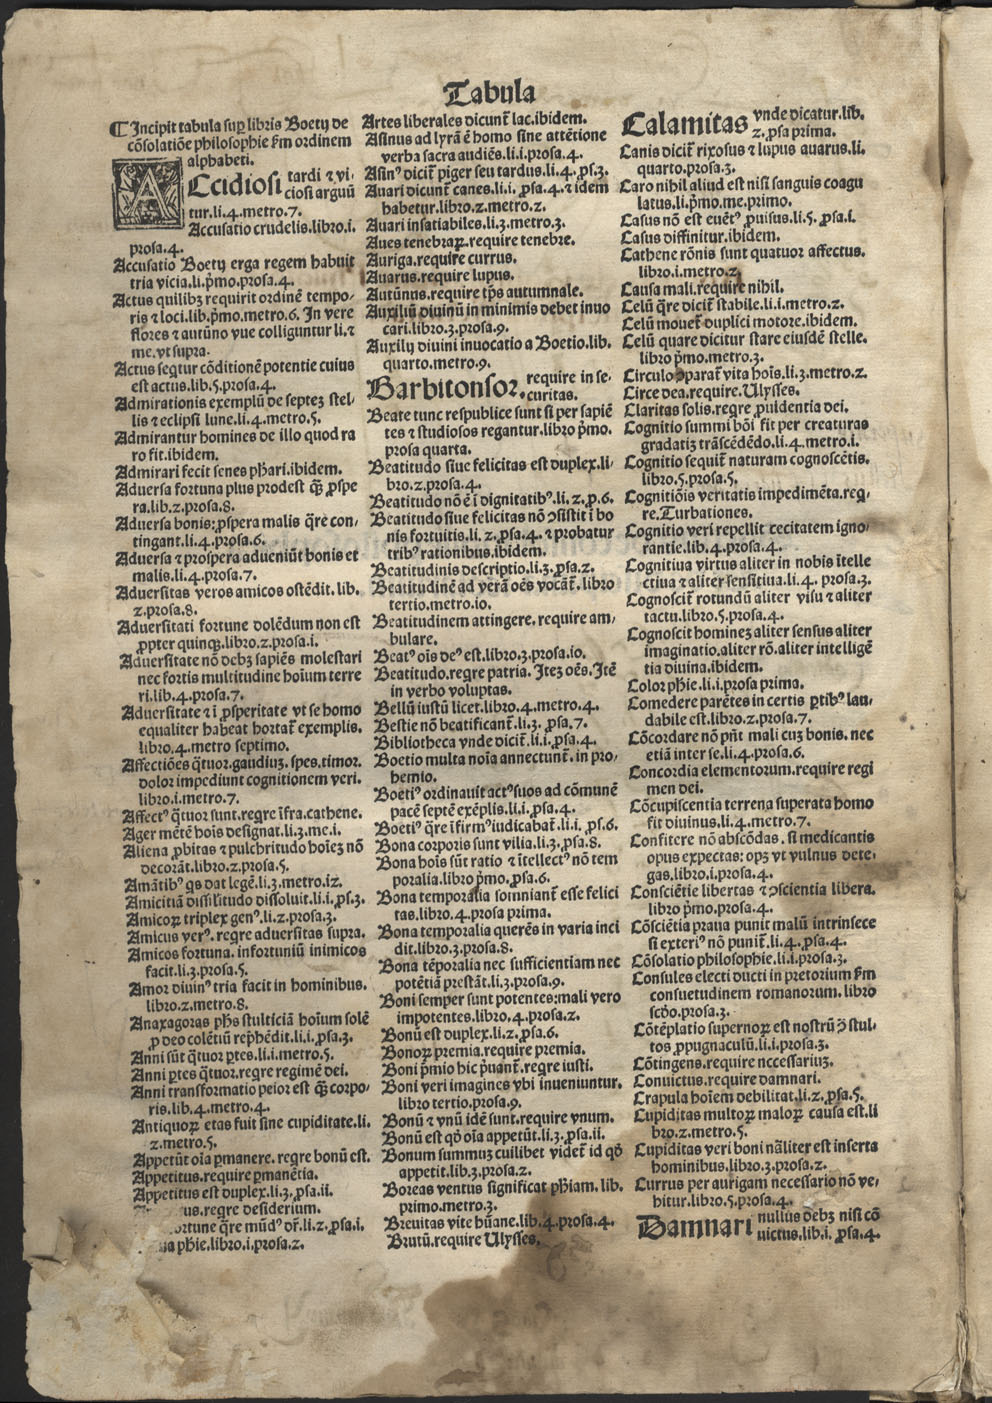 Tabula
¶ Incipit tabula sup̱ libris Boetij de
cōsolatiōe philosophie ẜm ordinem
alphabeti.
ACcidiosi tardi ⁊ vi-
ciosi arguū
tur.li.4.metro.7.
Accusatio crudelis.libro.i.
prosa.4.
Accusatio Boetij erga regem habuit
tria vicia.li.p̄mo.prosa.4.
Actus quilibꝫ requirit ordinē tempo-
ris ⁊ loci.lib.p̄mo.metro.6. In vere
flores ⁊ autūno vue colliguntur li.⁊
me.vt supra.
Actus seq̄tur cōditionē potentie cuius
est actus.lib.5.prosa.4.
Admirationis exemplū de septeꝫ stel-
lis ⁊ eclipsi lune.li.4.metro.5.
Admirantur homines de illo quod ra
ro fit.ibidem.
Admirari fecit senes pħari.ibidem.
Aduersa fortuna plus prodest q̄ꝫ ꝓspe
ra.lib.z.prosa.8.
Aduersa bonis:ꝓspera malis q̄re con-
tingant.li.4.prosa.6.
Aduersa ⁊ prospera adueniūt bonis et
malis.li.4.prosa.7.
Aduersitas veros amicos ostēdit.lib.
z.prosa.8.
Aduersitati fortune dolēdum non est
ꝓpter quinqꝫ.libro.z.prosa.i.
Aduersitate nō debꝫ sapiēs molestari
nec fortis multitudine hoīum terre
ri.lib.4.prosa.7.
Aduersitate ⁊ ī ꝓsperitate vt se homo
equaliter habeat hortat᷑ exemplis.
libro.4.metro septimo.
Affectiōes q̄tuor.gaudiuꝫ.spes.timor.
dolor impediunt cognitionem veri.
libro.i.metro.7.
Affectꝰ q̄tuor sunt.reqre īfra.cathene.
Ager mētē hois designat.li.3.me.i.
Aliena ꝓbitas ⁊ pulchritudo hoīeꝫ nō
decorāt.libro.z.prosa.5.
Amātibꝰ qs dat legē.li.3.metro.iz.
Amicitiā dissiłitudo dissoluit.li.i.ꝓs.3.
Amicoꝝ triplex genꝰ.li.z.prosa.3.
Amicus verꝰ.reqre aduersitas supra.
Amicos fortuna.infortuniū inimicos
facit.li.3.prosa.5.
Amor diuinꝰ tria facit in hominibus.
libro.z.metro.8.
Anaxagoras pħs stulticiā hoīum solē
ꝓ deo colētiū rep̄hēdit.li.i.ꝓsa.3.
Anni sūt q̄tuor ꝑtes.li.i.metro.5.
Anni ꝑtes q̄tuor.reqre regimē dei.
Anni transformatio peior est q̄ꝫ corpo-
ris.lib.4.metro.4.
Antiquoꝝ etas fuit sine cupiditate.li.
z.metro.5.
Appetūt oīa ꝑmanere.reqre bonū est.
Appetitus.require ꝑmanētia.
Appetitus est duplex.li.3.ꝓsa.ii.
us.reqre desiderium.
ortune q̄re mūdꝰ dr̄.li.z.ꝓsa.i.
pħie.libro.i.prosa.z.
Artes liberales dicunt᷑ lac.ibidem.
Asinus ad lyrā ē homo sine attētione
verba sacra audiēs.li.i.prosa.4.
Asinꝰ dicit᷑ piger seu tardus.li.4.ꝓs.3.
Auari dicunt᷑ canes.li.i.ꝓsa.4.⁊ idem
habetur.libro.z.metro.z.
Auari insatiabiles.li.3.metro.3.
Aues tenebraꝝ.require tenebre.
Auriga.require currus.
Auarus.require lupus.
Autūnus.require tp̄s autumnale.
Auxiliū diuinū in minimis debet inuo
cari.libro.3.prosa.9.
Auxilij diuini inuocatio a Boetio.lib.
quarto.metro.9.
Barbitonsor. require in se-
curitas.
Beate tunc respublice sunt si per sapiē
tes ⁊ studiosos regantur.libro p̄mo.
prosa quarta.
Beatitudo siue felicitas est duplex.li-
bro.z.prosa.4.
Beatitudo nō ē ī dignitatibꝰ.li.z.ꝓ.6.
Beatitudo siue felicitas nō ↄsistit ī bo
nis fortuitis.li.z.ꝓsa.4.⁊ probatur
tribꝰ rationibus.ibidem.
Beatitudinis descriptio.li.3.ꝓsa.z.
Beatitudinē ad verā oēs vocāt᷑.libro
tertio.metro.io.
Beatitudinem attingere.require am-
bulare.
Beatꝰ ois deꝰ est.libro.3.prosa.io.
Beatitudo.reqre patria. Iteꝫ oēs.Itē
in verbo voluptas.
Bellū iustū licet.libro.4.metro.4.
Bestie nō beatificant᷑.li.3.ꝓsa.7.
Bibliotheca vnde dicit᷑.li.i.ꝓsa.4.
Boetio multa noīa annectunt᷑.in pro-
hemio.
Boetiꝰ ordinauit actꝰsuos ad cōmunē
pacē septē exēplis.li.i.ꝓsa.4.
Boetiꝰ q̄re īfirmꝰiudicabat᷑.li.i.ꝓs.6.
Bona corporis sunt vilia.li.3.ꝓsa.8.
Bona hoīs sūt ratio ⁊ ītellectꝰ nō tem
poralia.libro p̄mo.ꝓsa.6.
Bona temporalia somniant᷑ esse felici
tas.libro.4.prosa prima.
Bona temporalia querēs in varia inci
dit.libro.3.prosa.8.
Bona tēporalia nec sufficientiam nec
potētiā prestāt.li.3.prosa.9.
Boni semper sunt potentes:mali vero
impotentes.libro.4.prosa.z.
Bonū est duplex.li.z.ꝓsa.6.
Bonoꝝ premia.require premia.
Boni p̄mio hic p̄uant᷑.reqre iusti.
Boni veri imagines vbi inueniuntur.
libro tertio.prosa.9.
Bonū ⁊ vnū idē sunt.require vnum.
Bonū est qđ oīa appetūt.li.3.ꝓsa.ii.
Bonum summuꝫ cuilibet videt᷑ id qđ
appetit.lib.3.prosa.z.
Boreas ventus significat pħiam.lib.
primo.metro.3.
Breuitas vite hūane.lib.4.prosa.4.
Brutū.require Ulysses.
Calamitas vnde dicatur.lib.
z.ꝓsa prima.
Canis dicit᷑ rixosus ⁊ lupus auarus.li.
quarto.prosa.3.
Caro nihil aliud est nisi sanguis coagu
latus.li.p̄mo.me.primo.
Casus nō est euētꝰ ꝓuisus.li.5.ꝓsa.i.
Casus diffinitur.ibidem.
Cathene rōnis sunt quatuor affectus.
libro.i.metro.z.
Causa mali.require nihil.
Celū q̄re dicit᷑ stabile.li.i.metro.z.
Celū mouet᷑ duplici motore.ibidem.
Celū quare dicitur stare eiusdē stelle.
libro p̄mo.metro.3.
Circulo ↄparat᷑ vita hoīs.li.3.metro.z.
Circe dea.require.Ulysses.
Claritas solis.reqre ꝓuidentia dei.
Cognitio summi bōi fit per creaturas
gradatiꝫ trāscēdēdo.li.4.metro.i.
Cognitio sequit᷑ naturam cognoscētis.
libro.5.prosa.5.
Cognitiōis veritatis impedimēta.req-
re.Turbationes.
Cognitio veri repellit cecitatem igno-
rantie.lib.4.prosa.4.
Cognitiua virtus aliter in nobis ītelle
ctiua ⁊ aliter sensitiua.li.4. prosa.3.
Cognoscit᷑ rotundū aliter visu ⁊ aliter
tactu.libro.5.prosa.4.
Cognoscit homineꝫ aliter sensus aliter
imaginatio.aliter rō.aliter intelligē
tia diuina.ibidem.
Color pħie.li.i.prosa prima.
Comedere parētes in certis ꝑtibꝰ lau-
dabile est.libro.z.prosa.7.
Cōcordare nō pn̄t mali cuꝫ bonis.nec
etiā inter se.li.4.prosa.6.
Concordia elementorum.require regi
men dei.
Cōcupiscentia terrena superata homo
fit diuinus.li.4.metro.7.
Confitere nō abscōdas.si medicantis
opus expectas:opꝫ vt vulnus dete-
gas.libro.i.prosa.4.
Consciētie libertas ⁊ ↄscientia libera.
libro p̄mo.prosa.4.
Cōsciētia praua punit malū intrinsece
si exteriꝰ nō punit᷑.li.4.ꝓsa.4.
Cōsolatio philosophie.li.i.prosa.3.
Consules electi ducti in pretorium ẜm
consuetudinem romanorum.libro
scđo.prosa.3.
Cōtēplatio supernoꝝ est nostrū ↄ̄ stul-
tos ꝓpugnaculū.li.i.prosa.3.
Cōtingens.require necessariuꝫ.
Conuictus.require damnari.
Crapula hoīem debilitat.li.z.ꝓsa.5.
Cupiditas multoꝝ maloꝝ causa est.li
bro.z.metro.5.
Cupiditas veri boni nāliter est inserta
hominibus.libro.3.prosa.z.
Currus per aurigam necessario nō ve-
hitur.libro.5.prosa.4.
Damnari nullus debꝫ nisi cō
uictus.lib.i.ꝓsa.4.